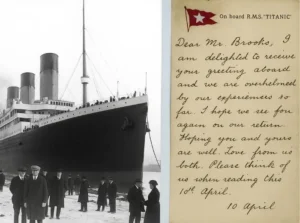 On board R.M.S. "TITANIC"
Dear Mr. Brooks, I
am delighted to receive
your greeting aboard
and we are overwhelmed
by our experiences so
far. I hope we see you
again on our return.
Hoping you and yours
are well. Love from us
both. Please think of
us when reading this
10th April.
10 April